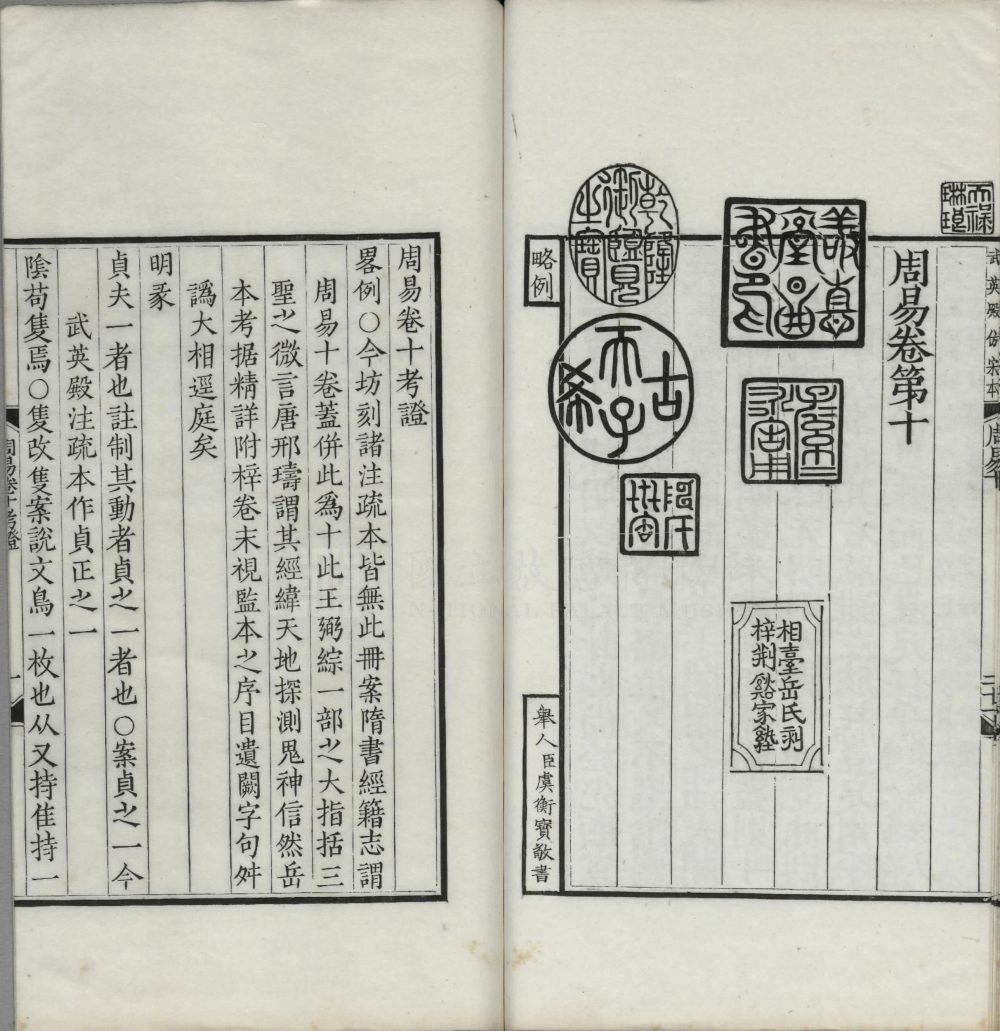 天祿
琳琅
武英殿仿宋本
周易十
周易卷第十
相臺岳氏刻
梓荆谿家塾
乾隆
御覽
之寶
古
天子
希
略例
舉人臣虞衡寶敬書
周易卷十考證
畧例○今坊刻諸注疏本皆無此冊案隋書經籍志謂
周易十卷蓋併此爲十此王弼綜一部之大指括三
聖之微言唐邢璹謂其經緯天地探測鬼神信然岳
本考据精詳附梓卷末視監本之序目遺闕字句舛
譌大相逕庭矣
明彖
貞夫一者也註制其動者貞之一者也○案貞之一今
武英殿注疏本作貞正之一
陰苟隻焉○隻改隻案說文鳥一枚也从又持隹持一
周易卷十考證
一